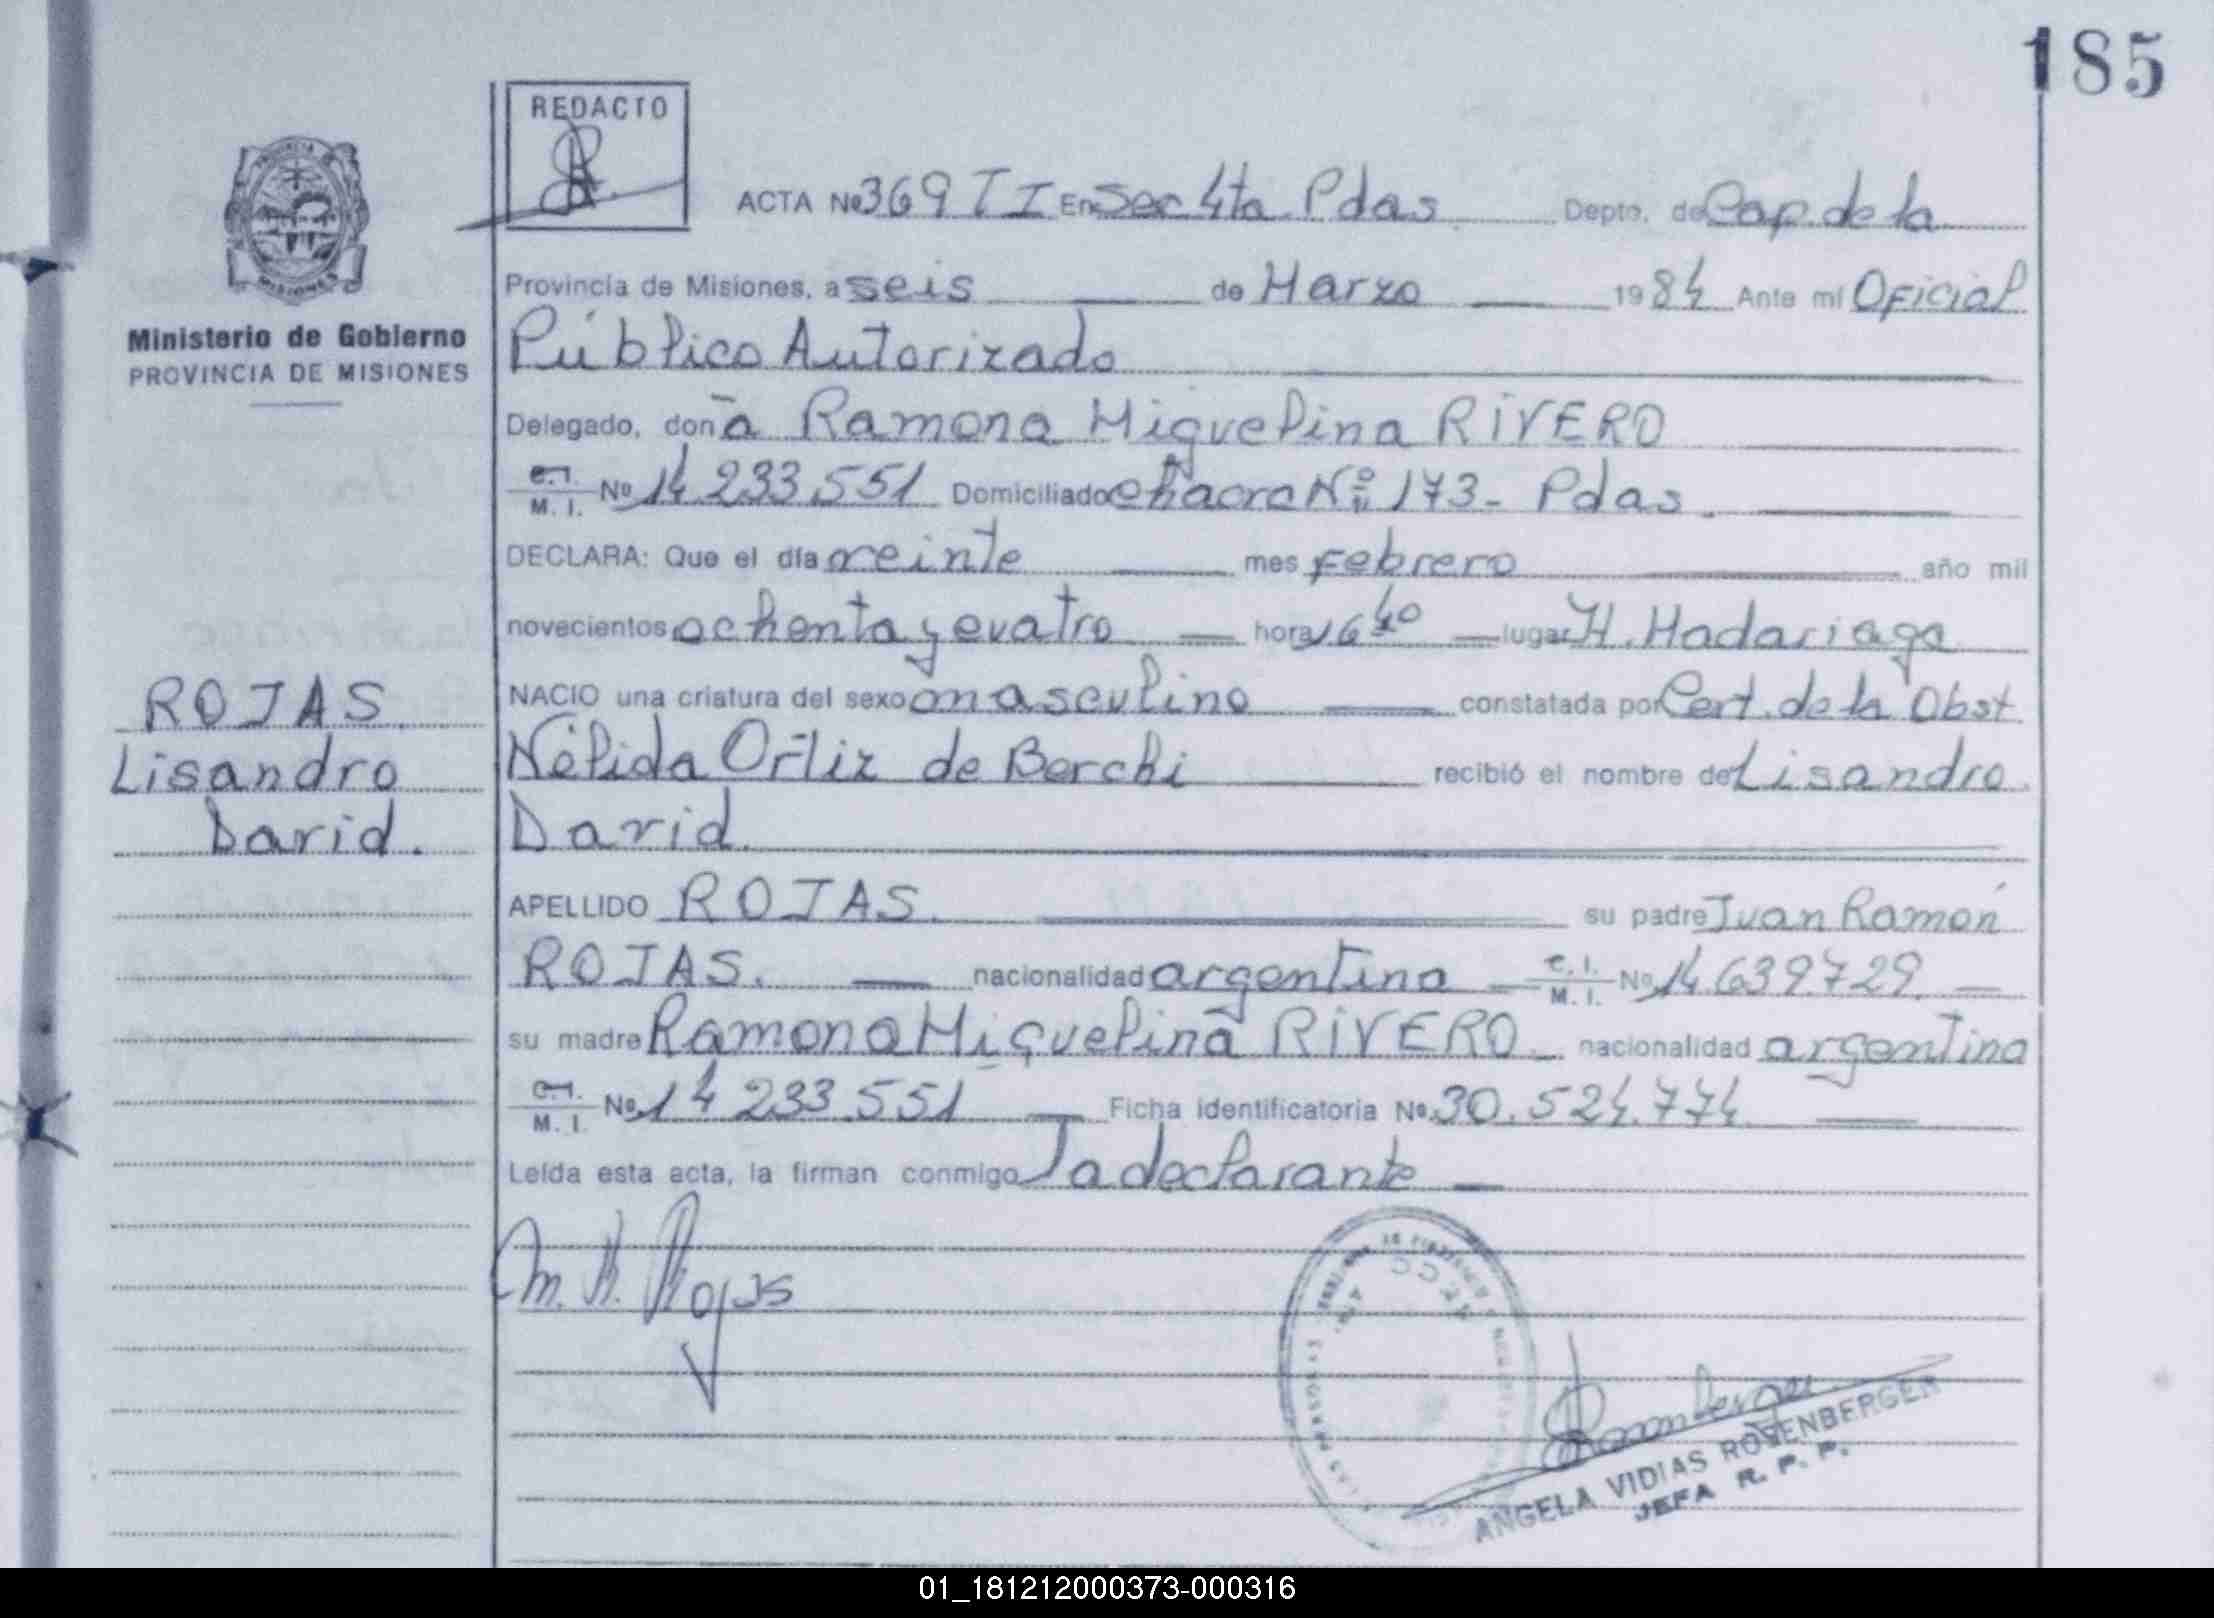 185
REDACTO
ACTA No 369 T I En Sec 4ta. Pdas Depto. de Cap. de la
Provincia de Misiones, a seis de Marzo 1984 Ante mi Oficial
Ministerio de Gobierno
PROVINCIA DE MISIONES
Público Autorizado
Delegado, donã Ramona Miguelina RIVERO
C.I. M. I. No 14 233.551 Domiciliado chacra Nº 173 - Pdas.
DECLARA: Que el día veinte mes Febrero año mil
novecientos ochenta y cuatro hora 16 40 lugar H. Madariaga
ROJAS
Lisandro
David.
NACIO una criatura del sexo masculino constatada por Cert. de la Obst
Nélida Ortiz de Berchi recibió el nombre de Lisandro
David.
APELLIDO ROJAS. su padre Juan Ramón
ROJAS. nacionalidad argentina C. I. M. I. No 14.639.729.
su madre Ramona Miguelina RIVERO nacionalidad argentina
C.I. M. I. No 14 233.551 Ficha identificatoria No 30.524.774
Leída esta acta, la firman conmigo la declarante
Rojas
ANGELA VIDIAS ROSENBERGER
JEFA R. P. P.
01_181212000373-000316